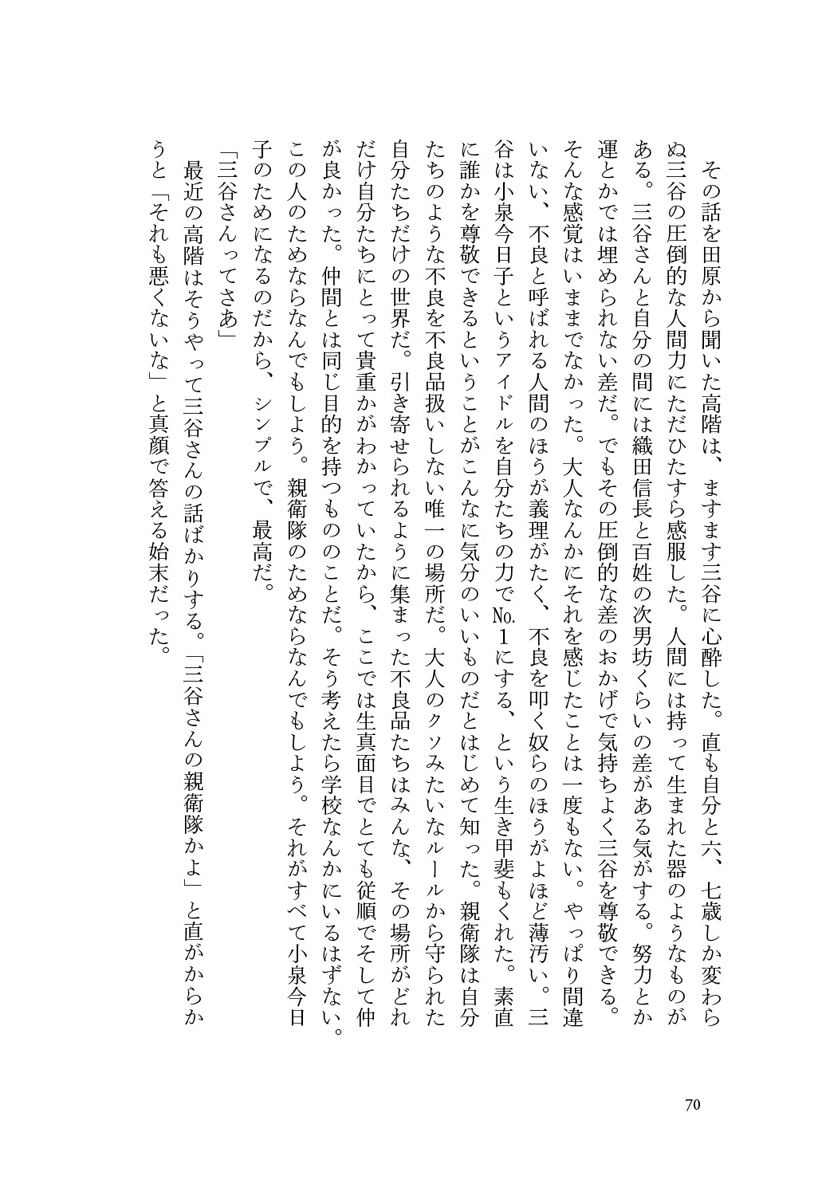 その話を田原から聞いた高階は、ますます三谷に心酔した。直も自分と六、七歳しか変わら
ぬ三谷の圧倒的な人間力にただひたすら感服した。人間には持って生まれた器のようなものが
ある。三谷さんと自分の間には織田信長と百姓の次男坊くらいの差がある気がする。努力とか
運とかでは埋められない差だ。でもその圧倒的な差のおかげで気持ちよく三谷を尊敬できる。
そんな感覚はいままでなかった。大人なんかにそれを感じたことは一度もない。やっぱり間違
いない、不良と呼ばれる人間のほうが義理がたく、不良を叩く奴らのほうがよほど薄汚い。三
谷は小泉今日子というアイドルを自分たちの力で№1にする、という生き甲斐もくれた。素直
に誰かを尊敬できるということがこんなに気分のいいものだとはじめて知った。親衛隊は自分
たちのような不良を不良品扱いしない唯一の場所だ。大人のクソみたいなルールから守られた
自分たちだけの世界だ。引き寄せられるように集まった不良品たちはみんな、その場所がどれ
だけ自分たちにとって貴重かがわかっていたから、ここでは生真面目でとても従順でそして仲
が良かった。仲間とは同じ目的を持つもののことだ。そう考えたら学校なんかにいるはずない。
この人のためならなんでもしよう。親衛隊のためならなんでもしよう。それがすべて小泉今日
子のためになるのだから、シンプルで、最高だ。
「三谷さんってさあ」
最近の高階はそうやって三谷さんの話ばかりする。「三谷さんの親衛隊かよ」と直がからか
うと「それも悪くないな」と真顔で答える始末だった。
70